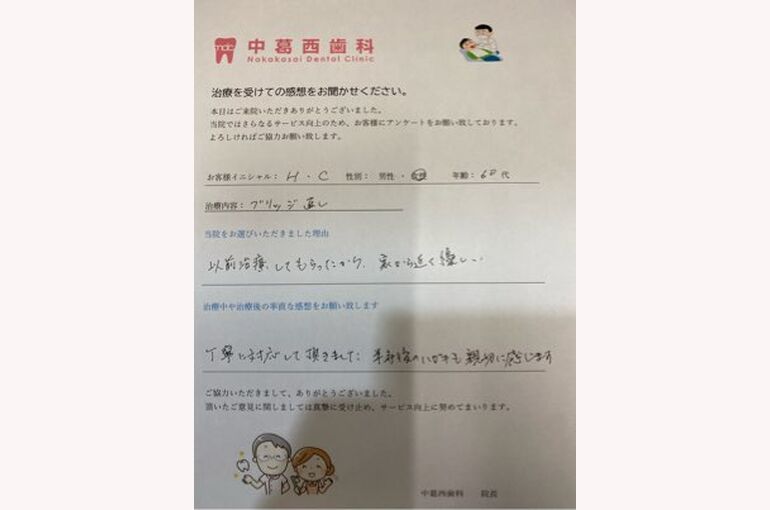 ndc 中葛西歯科
Nakakasai Dental Clinic
治療を受けての感想をお聞かせください。
本日はご来院いただきありがとうございました。
当院ではさらなるサービス向上のため、お客様にアンケートをお願い致しております。
よろしければご協力お願い致します。
お客様イニシャル： H ・ C 性別： 男性 ・ 女性 年齢： 60 代
治療内容： ブリッジ直し
当院をお選びいただきました理由
以前治療してもらったから、家から近く優しい
治療中や治療後の率直な感想をお願い致します
丁寧に対応して頂きました
親切に感じます
ご協力いただきまして、ありがとうございました。
頂いたご意見に関しましては真摯に受け止め、サービス向上に努めてまいります。
中葛西歯科 院長